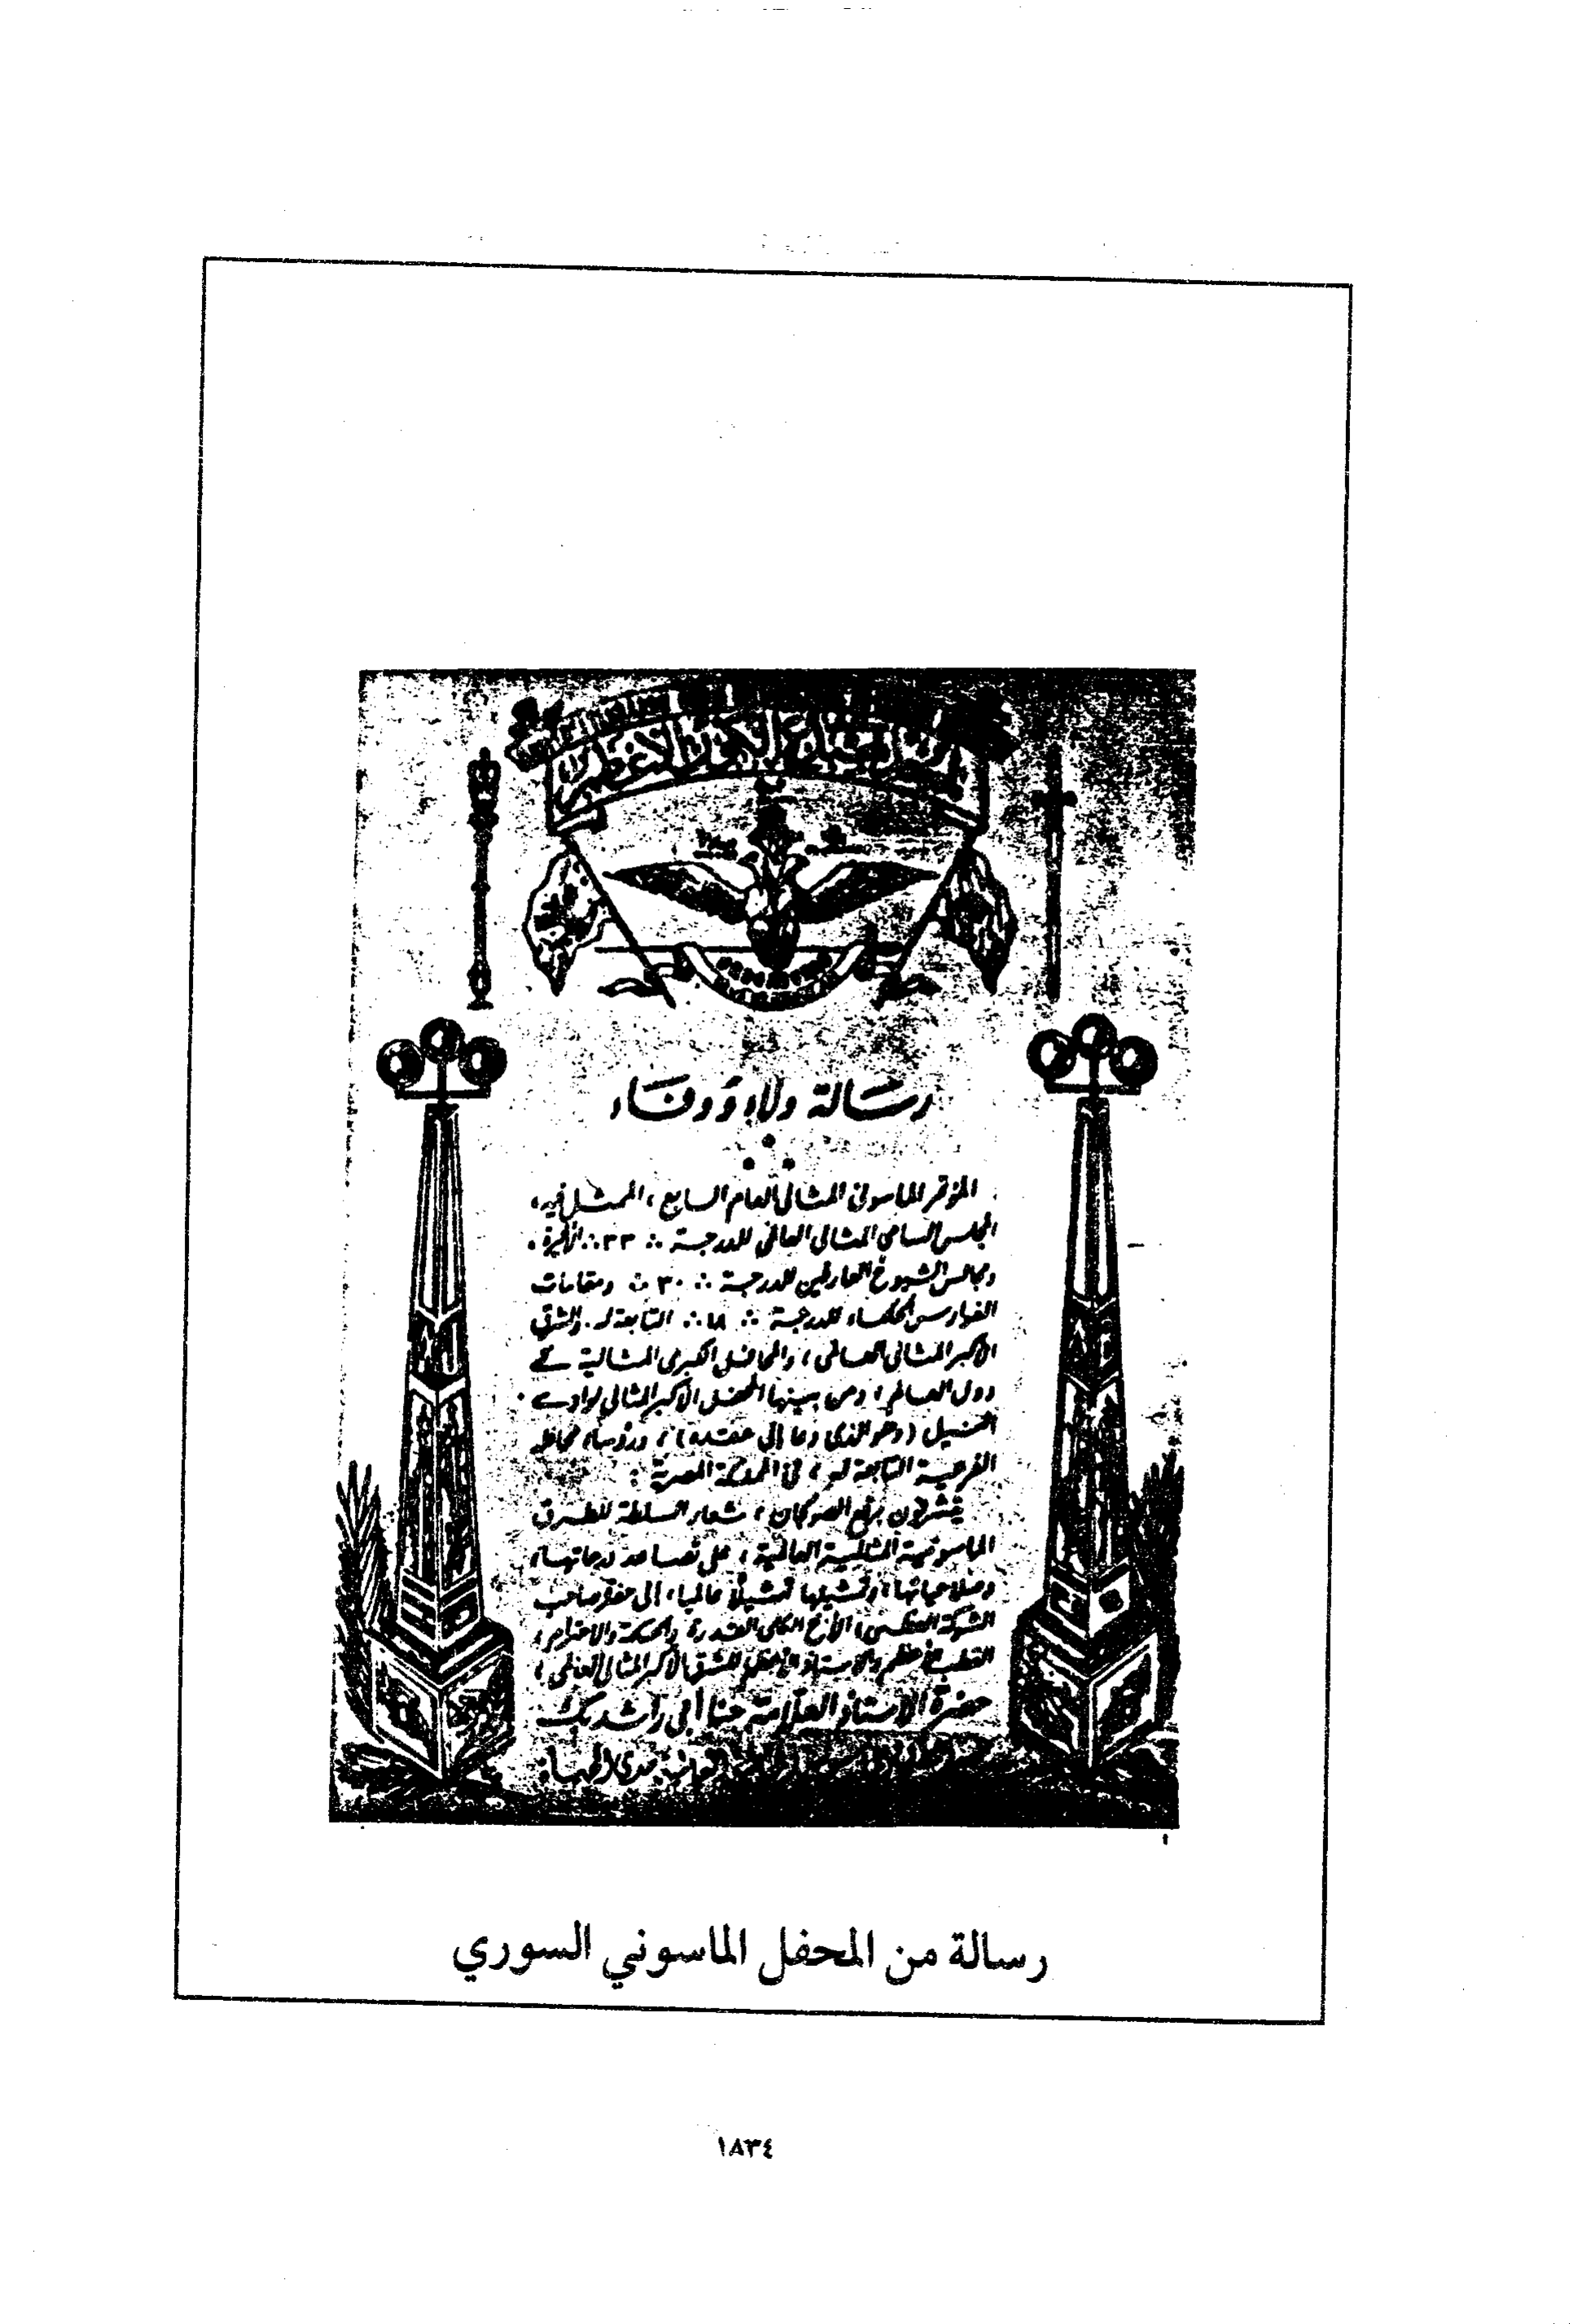 الكون الأعظم
رسالة ولاء ووفاء
المؤتمر الماسوني المثالي العام السابع، الممثل فيه،
المجلس السامي المثالي العالمي للدرجة ∴ ٣٣ ∴ الأخيرة،
ومجالس الشيوخ العارفين للدرجة ∴ ٣٠ ∴ ومقامات
الفوارس الحكماء للدرجة ∴ ١٨ ∴ التابعة له. والشرق
الأكبر المثالي العالمي، والمحافل الكبرى المثالية في
دول العالم، ومن بينها المحفل الأكبر المثالي لوادي
النيل (وهو الذي دعا إلى عقده)، ورؤساء محافله
الفرعية التابعة له، في المملكة المصرية:
يتشرفون برفع الصولجان، شعار السلطة للطرق
الماسونية المثالية العالمية، على تصاعد درجاتها،
وصلاحياتها، وتمثيلها تمثيلاً عالميا، إلى مقام صاحب
الشوكة العظمى، الأخ الكلي القدرة والحكمة والاحترام،
القطب الأعظم والأستاذ الأعظم للشرق الأكبر المثالي العالمي،
حضرة الاستاذ العلامة حنا أبي راشد بك
مدى الحياة
رسالة من المحفل الماسوني السوري
١٨٣٤